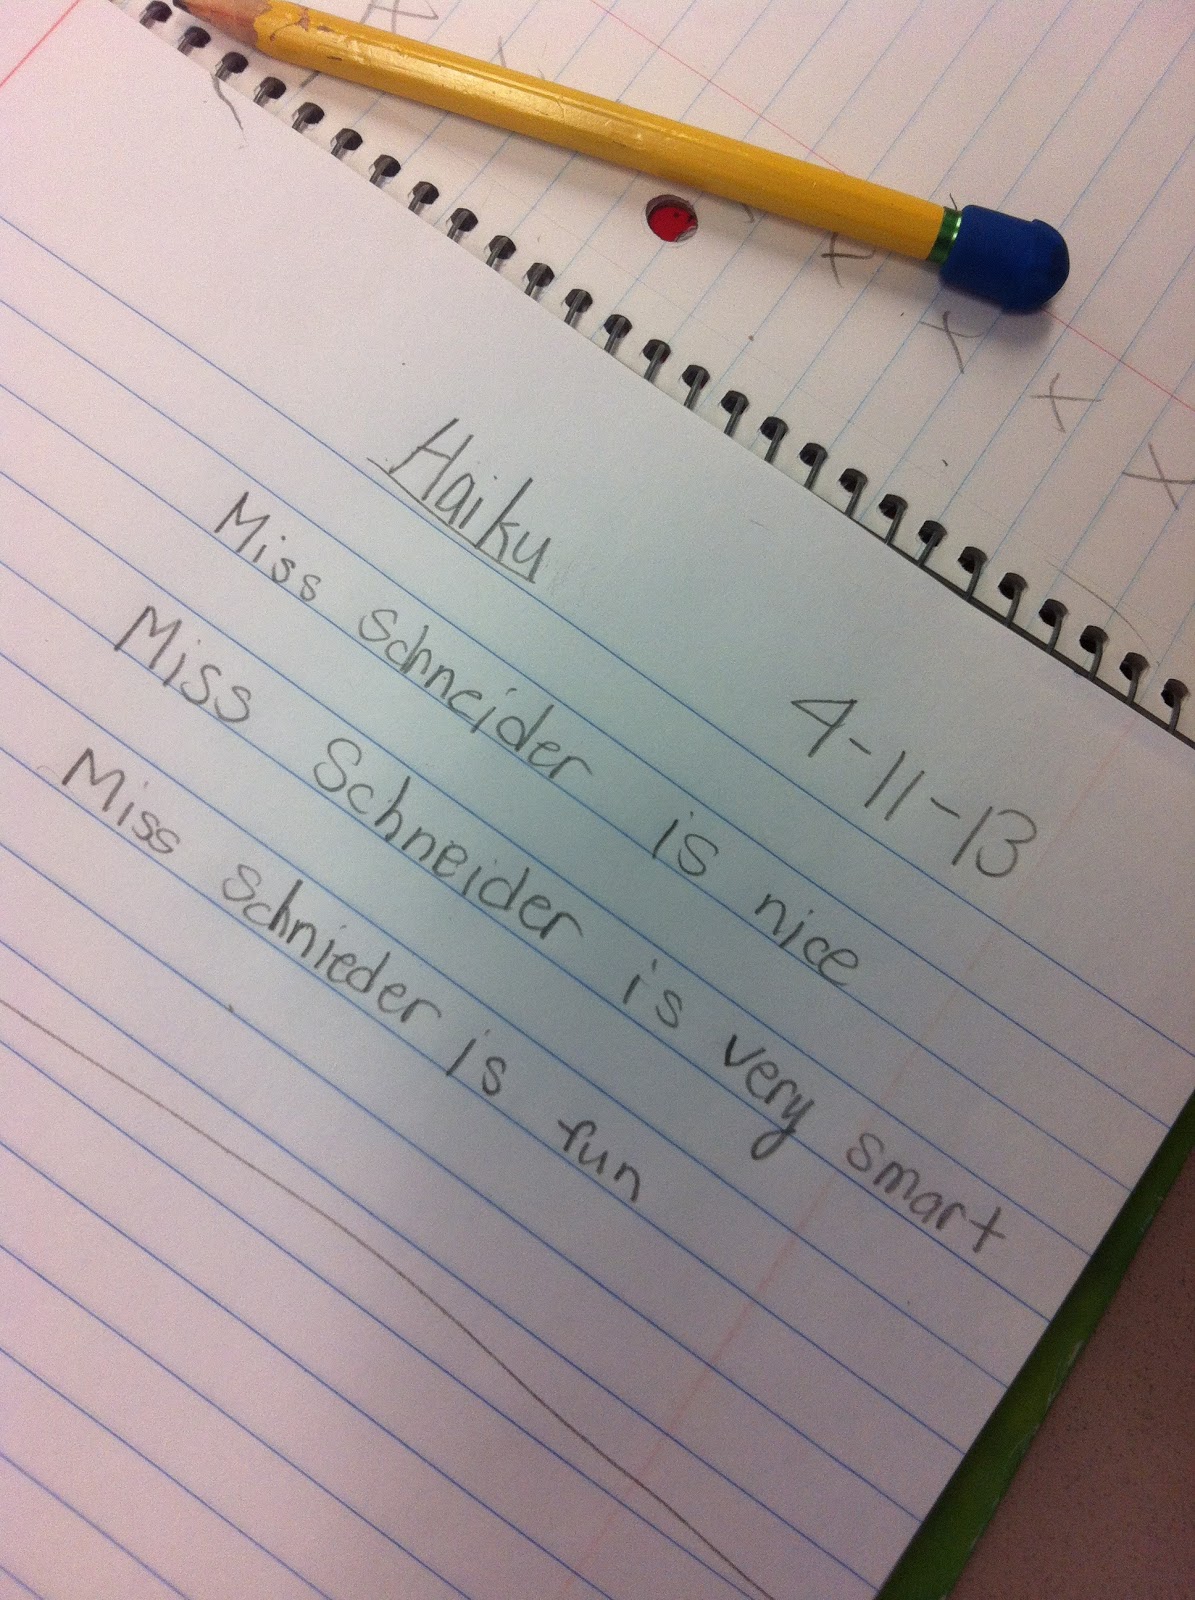 Haiku
4-11-13
Miss Schneider is nice
Miss Schneider is very smart
Miss Schnieder is fun
X
X
X
X